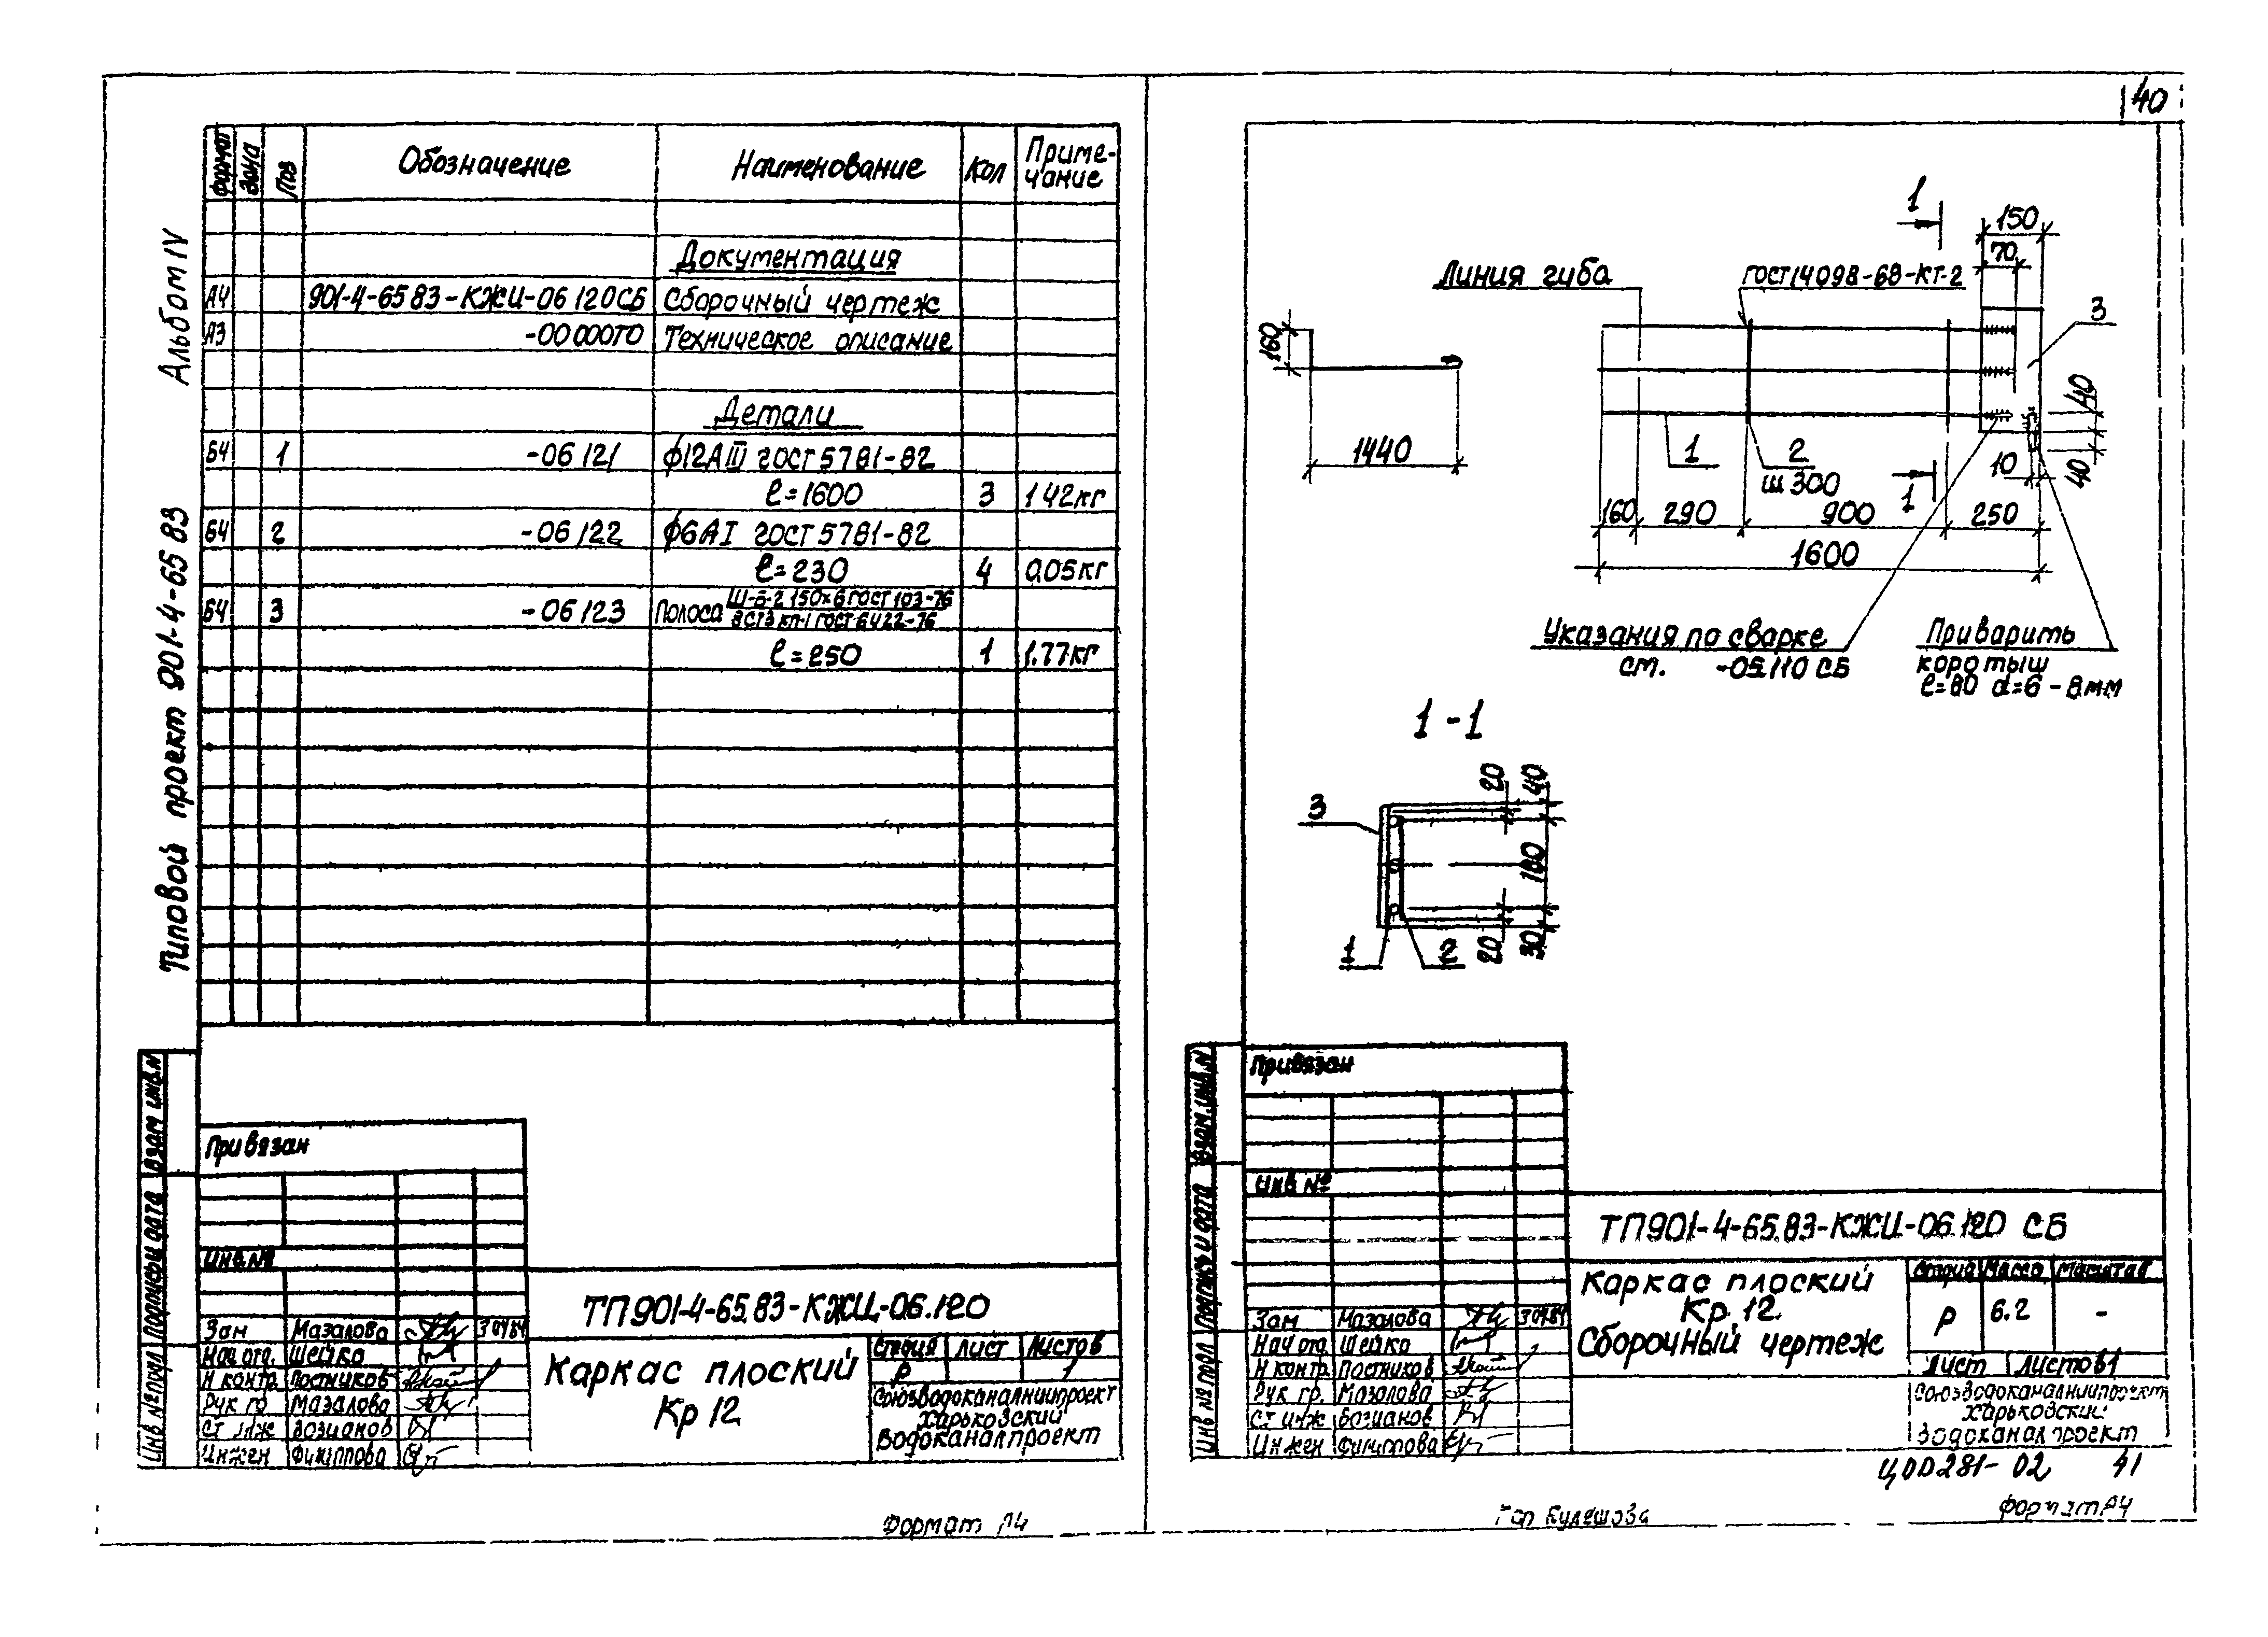 40
Альбом IV
Типовой проект 901-4-65 83
Формат
Зона
Поз
Обозначение
Наименование
Кол
Приме-
чание
Документация
А4 901-4-65 83-КЖИ-06 120СБ Сборочный чертеж
А3 -00 000ТО Техническое описание
Детали
Б4 1 -06 121 ф12АIII ГОСТ 5781-82
ℓ=1600 3 1 42кг
Б4 2 -06 122 ф6АI ГОСТ 5781-82
ℓ=230 4 0.05кг
Б4 3 -06 123 Полоса Ш-Б-2 150×6 ГОСТ 103-76
ВСт3 кп-1 ГОСТ 6422-76
ℓ=250 1 1.77кг
Взам инв.N
Подпись и дата
Инв № подл
Привязан
Инв №
Зам Мазалова 30484
Нач отд. Шейко
Н контр Постников
Рук гр Мазалова
Ст инж Возианов
Инжен Филиппова
ТП 901-4-65.83-КЖИ-06.120
Каркас плоский
Кр 12
Стадия Лист Листов
Р 1
Союзводоканалниипроект
Харьковский
Водоканалпроект
Формат А4
1
150
70
Линия гиба
ГОСТ 14098-68-КТ-2
3
160
1440
40
1
2
ш 300
1
10
40
160 290 900 250
1600
Указания по сварке
см. -05.110 СБ
Приварить
коротыш
ℓ=80 d=6-8мм
1-1
20
40
3
180
1
2
20
30
Взам.инв.N
Подпись и дата
Инв № подл
Привязан
Инв №
Зам Мазалова 30484
Нач отд Шейко
Н контр. Постников
Рук гр. Мазалова
Ст инж Возианов
Инжен Филиппова
ТП901-4-65.83-КЖИ-06.120 СБ
Каркас плоский
Кр.12.
Сборочный чертеж
Стадия Масса Масштаб
Р 6.2 -
Лист Листов 1
Союзводоканалниипроект
Харьковский
Водоканалпроект
Ц00281-02 41
Кулешова
Формат А4